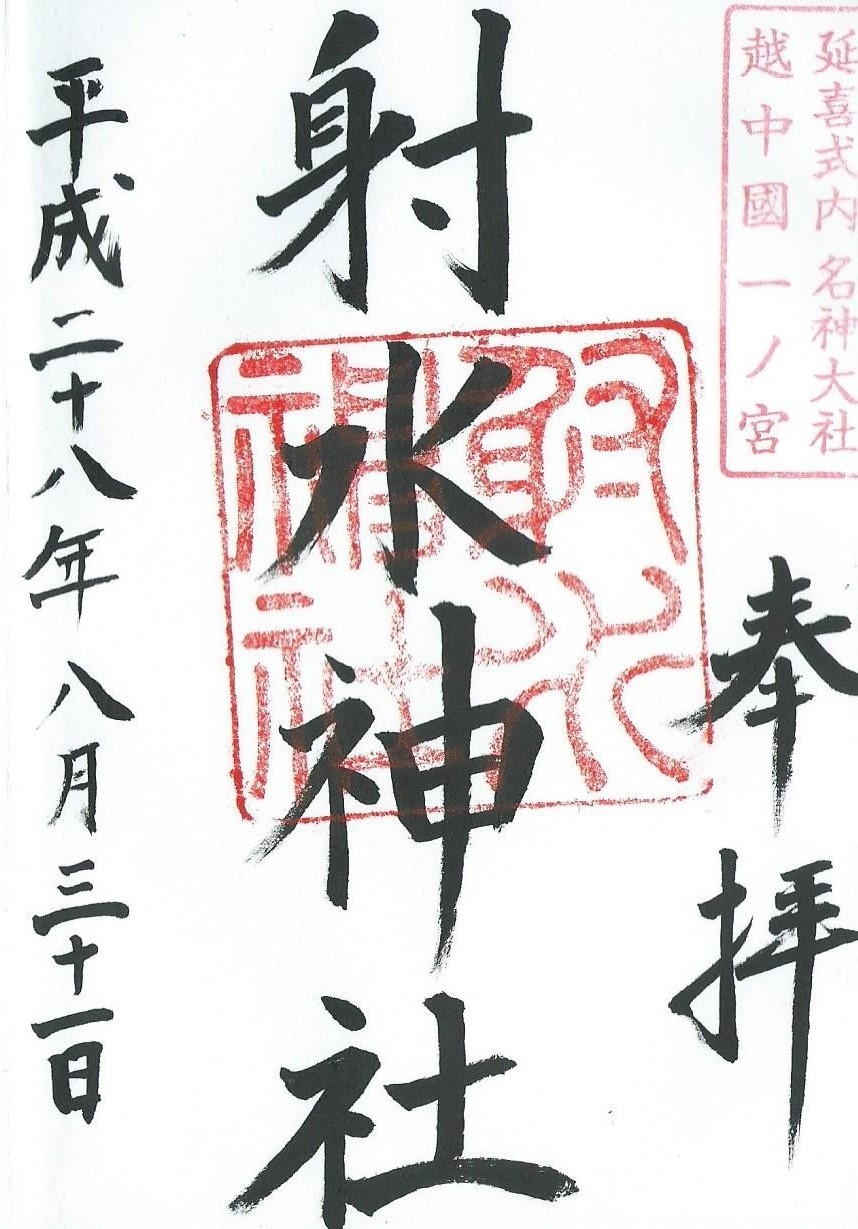 延喜式内名神大社
越中國一ノ宮
奉拝
射水神社
射水神社
平成二十八年八月三十一日